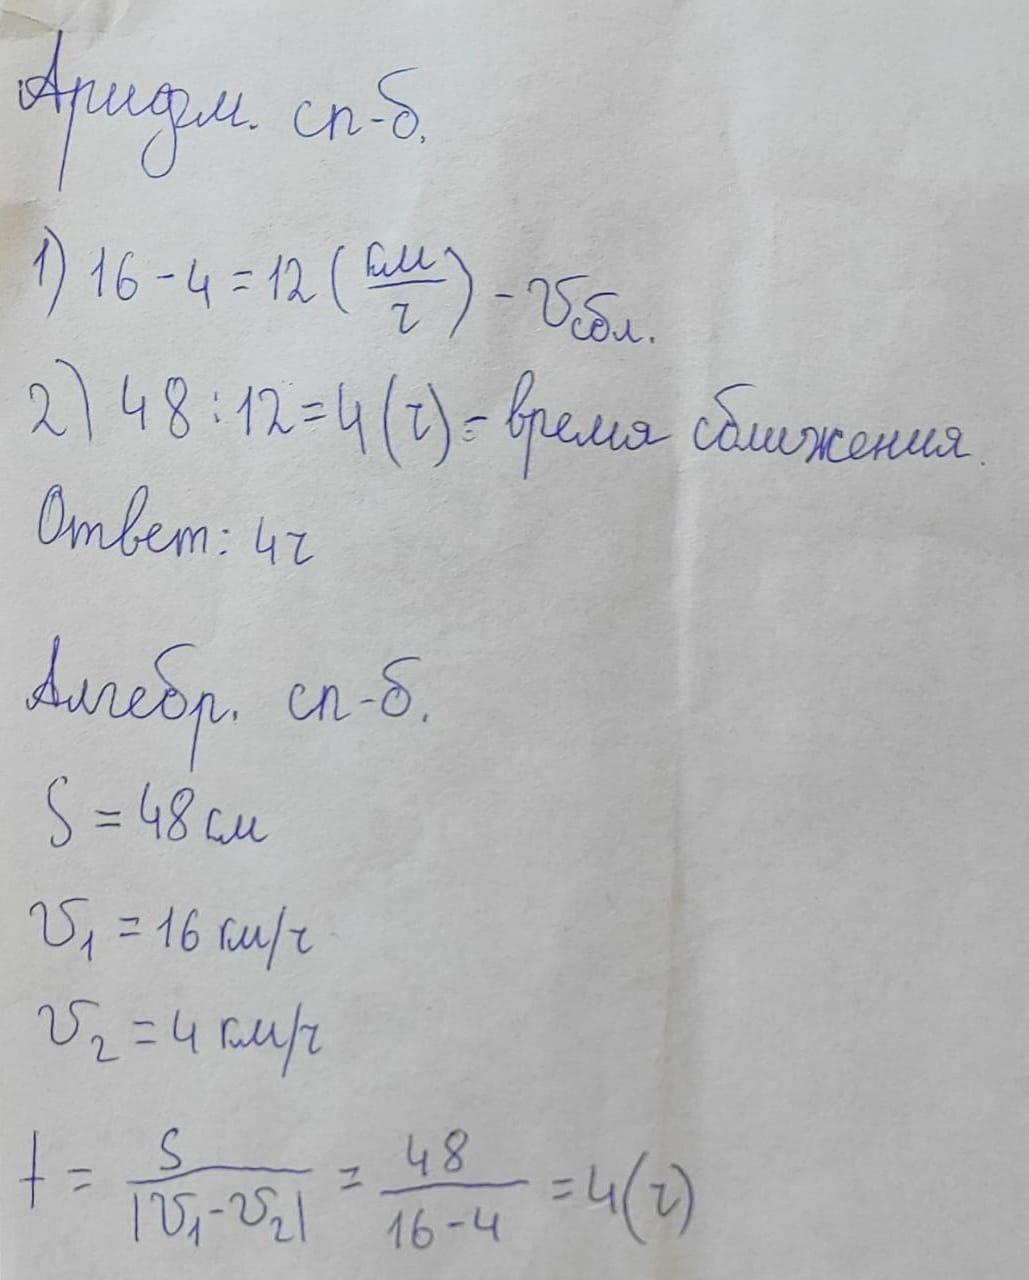 Аридм. сп-б.
1) 16 - 4 = 12 (км/ч) - Vсбл.
2) 48 : 12 = 4 (ч) - время сближения.
Ответ: 4ч
Алгебр. сп-б.
S = 48 км
V₁ = 16 км/ч
V₂ = 4 км/ч
t = S/|V₁ - V₂| = 48/(16 - 4) = 4 (ч)